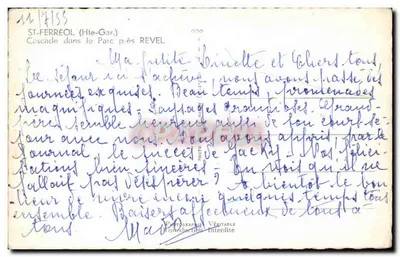 11/7/55
ST-FERREOL (Hte-Gar.)
Cascade dans le Parc près REVEL
Ma petite Linette et Chers tous,
Le séjour ici s'achève, nous avons passé des
journées exquises. Beau temps, promenades
magnifiques. Paysages grandioses. Grand-
père semble heureux aussi de son court sé-
jour avec nous. Nous avons appris, par le
Journal, le succès de Jacky. Nos félici-
tations bien sincères; on voit qu'il ne
fallait pas désespérer; A bientôt le bon-
heur de vivre encore quelques temps tous
ensemble. Baisers affectueux de tous à
tous.
PHOTOGRAPHIE VÉRITABLE
Reproduction Interdite